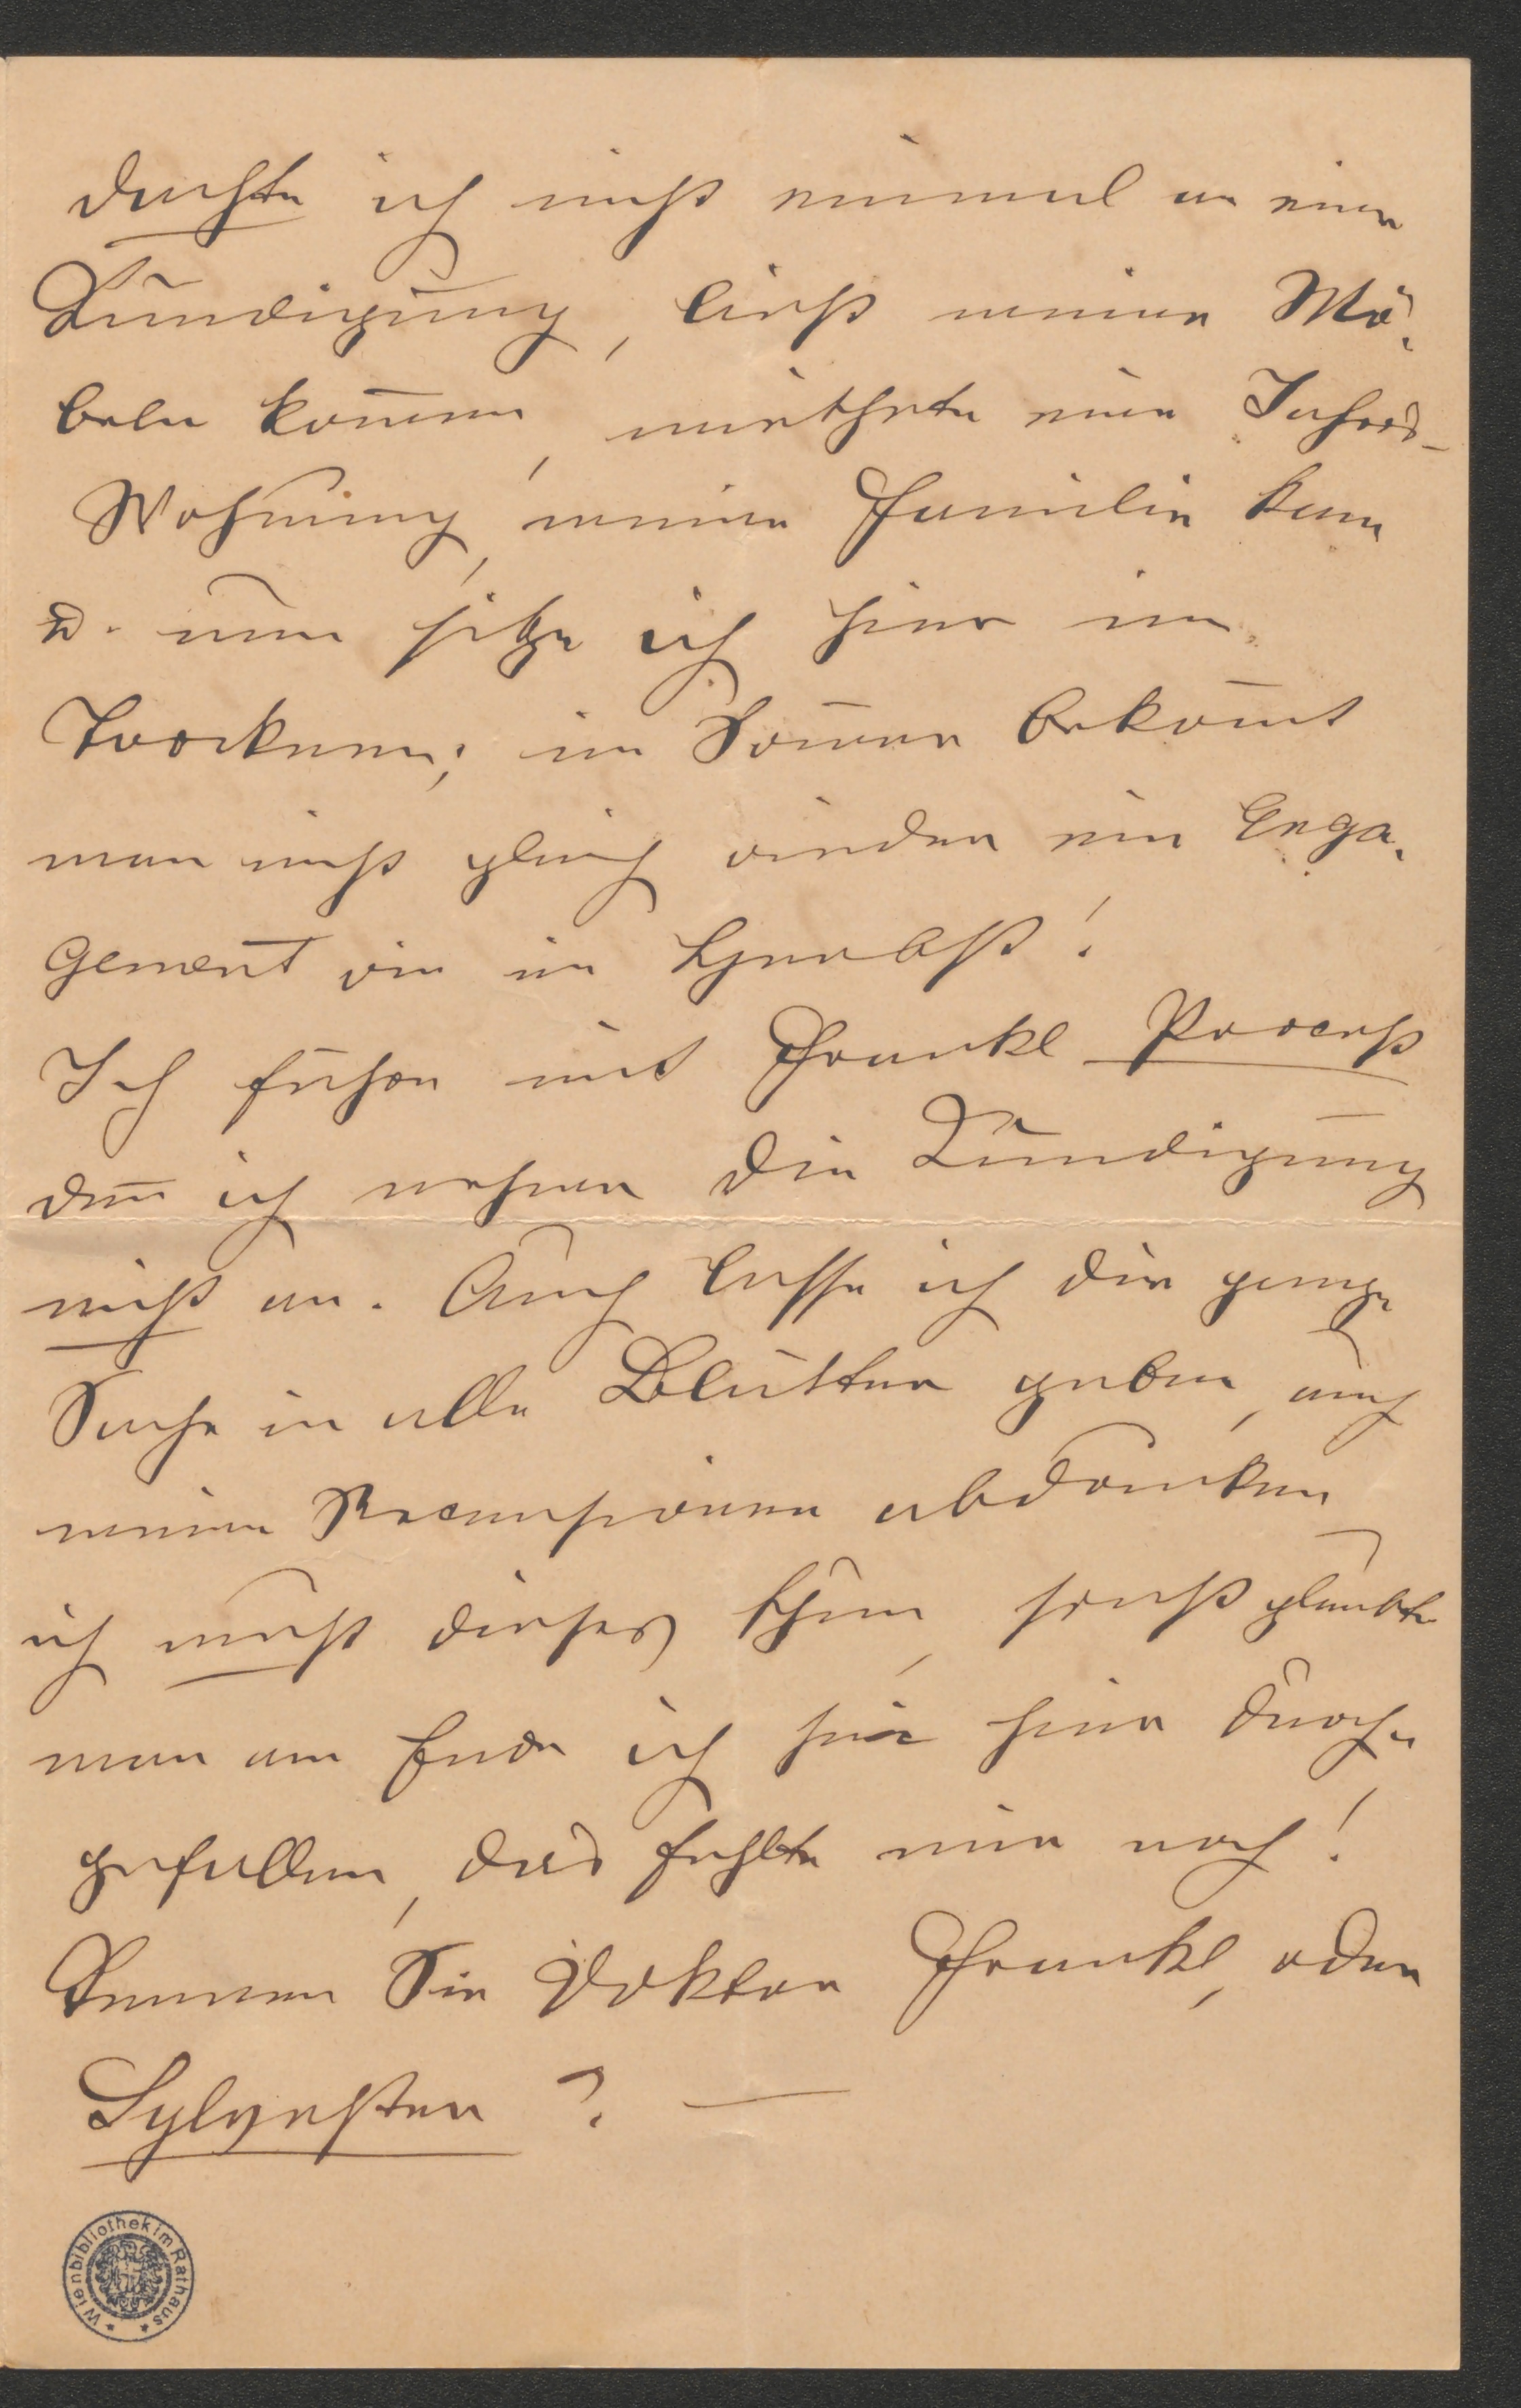 dachte ich nicht einmal an eine
Kündigung, ließ meine Mö-
beln kom̅en, miethete eine Jahres-
Wohnung, meine Familie kam
u. nun sitze ich hier im
Trockenen; im Som̅er bekom̅t
man nicht gleich wieder ein Enga-
gement wie im Herbst!
Ich führe mit Frankl Proceß
den̅ ich nehme die Kündigung
nicht an. Auch lasse ich die ganze
Sache in alle Blätter geben, auch
meine Recensionen abdrucken
ich muß dieses thun, sonst glaubte
man am Ende ich sei hier durch-
gefallen, das fehlte mir noch!
Kennen Sie Doktor Frankl, oder
Sylvester? —
Wienbibliothek im Rathaus